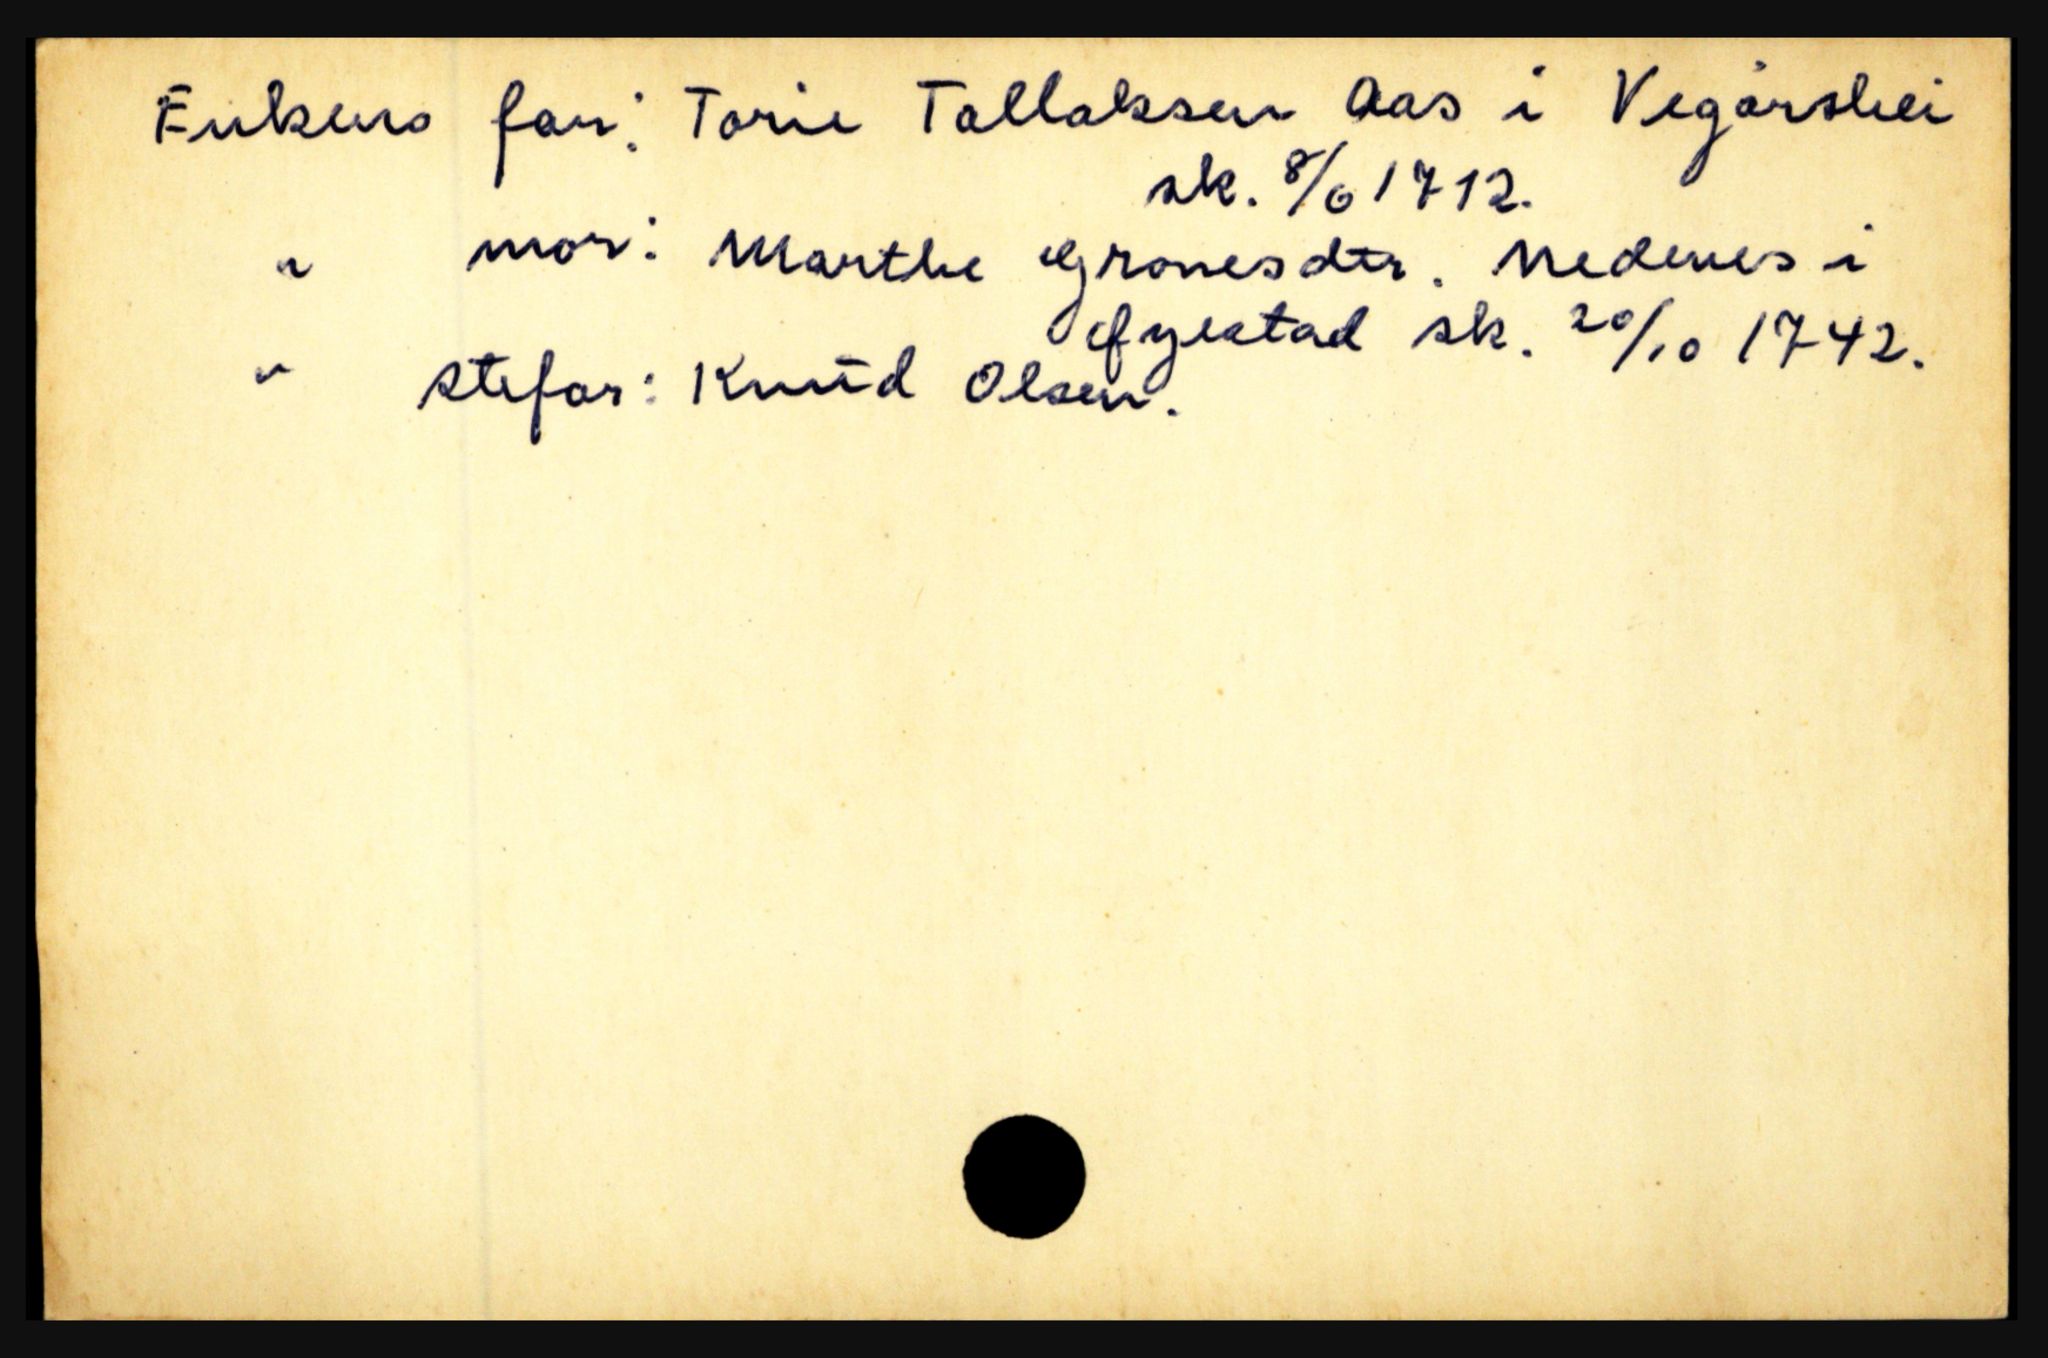 Enkens far: Torie Tallaksen Aas i Vegårshei
sk. 8/6 1712.
" mor: Marthe Gronesdtr. Nedenes i
Øyestad sk. 20/10 1742.
" stefar: Knud Olsen.